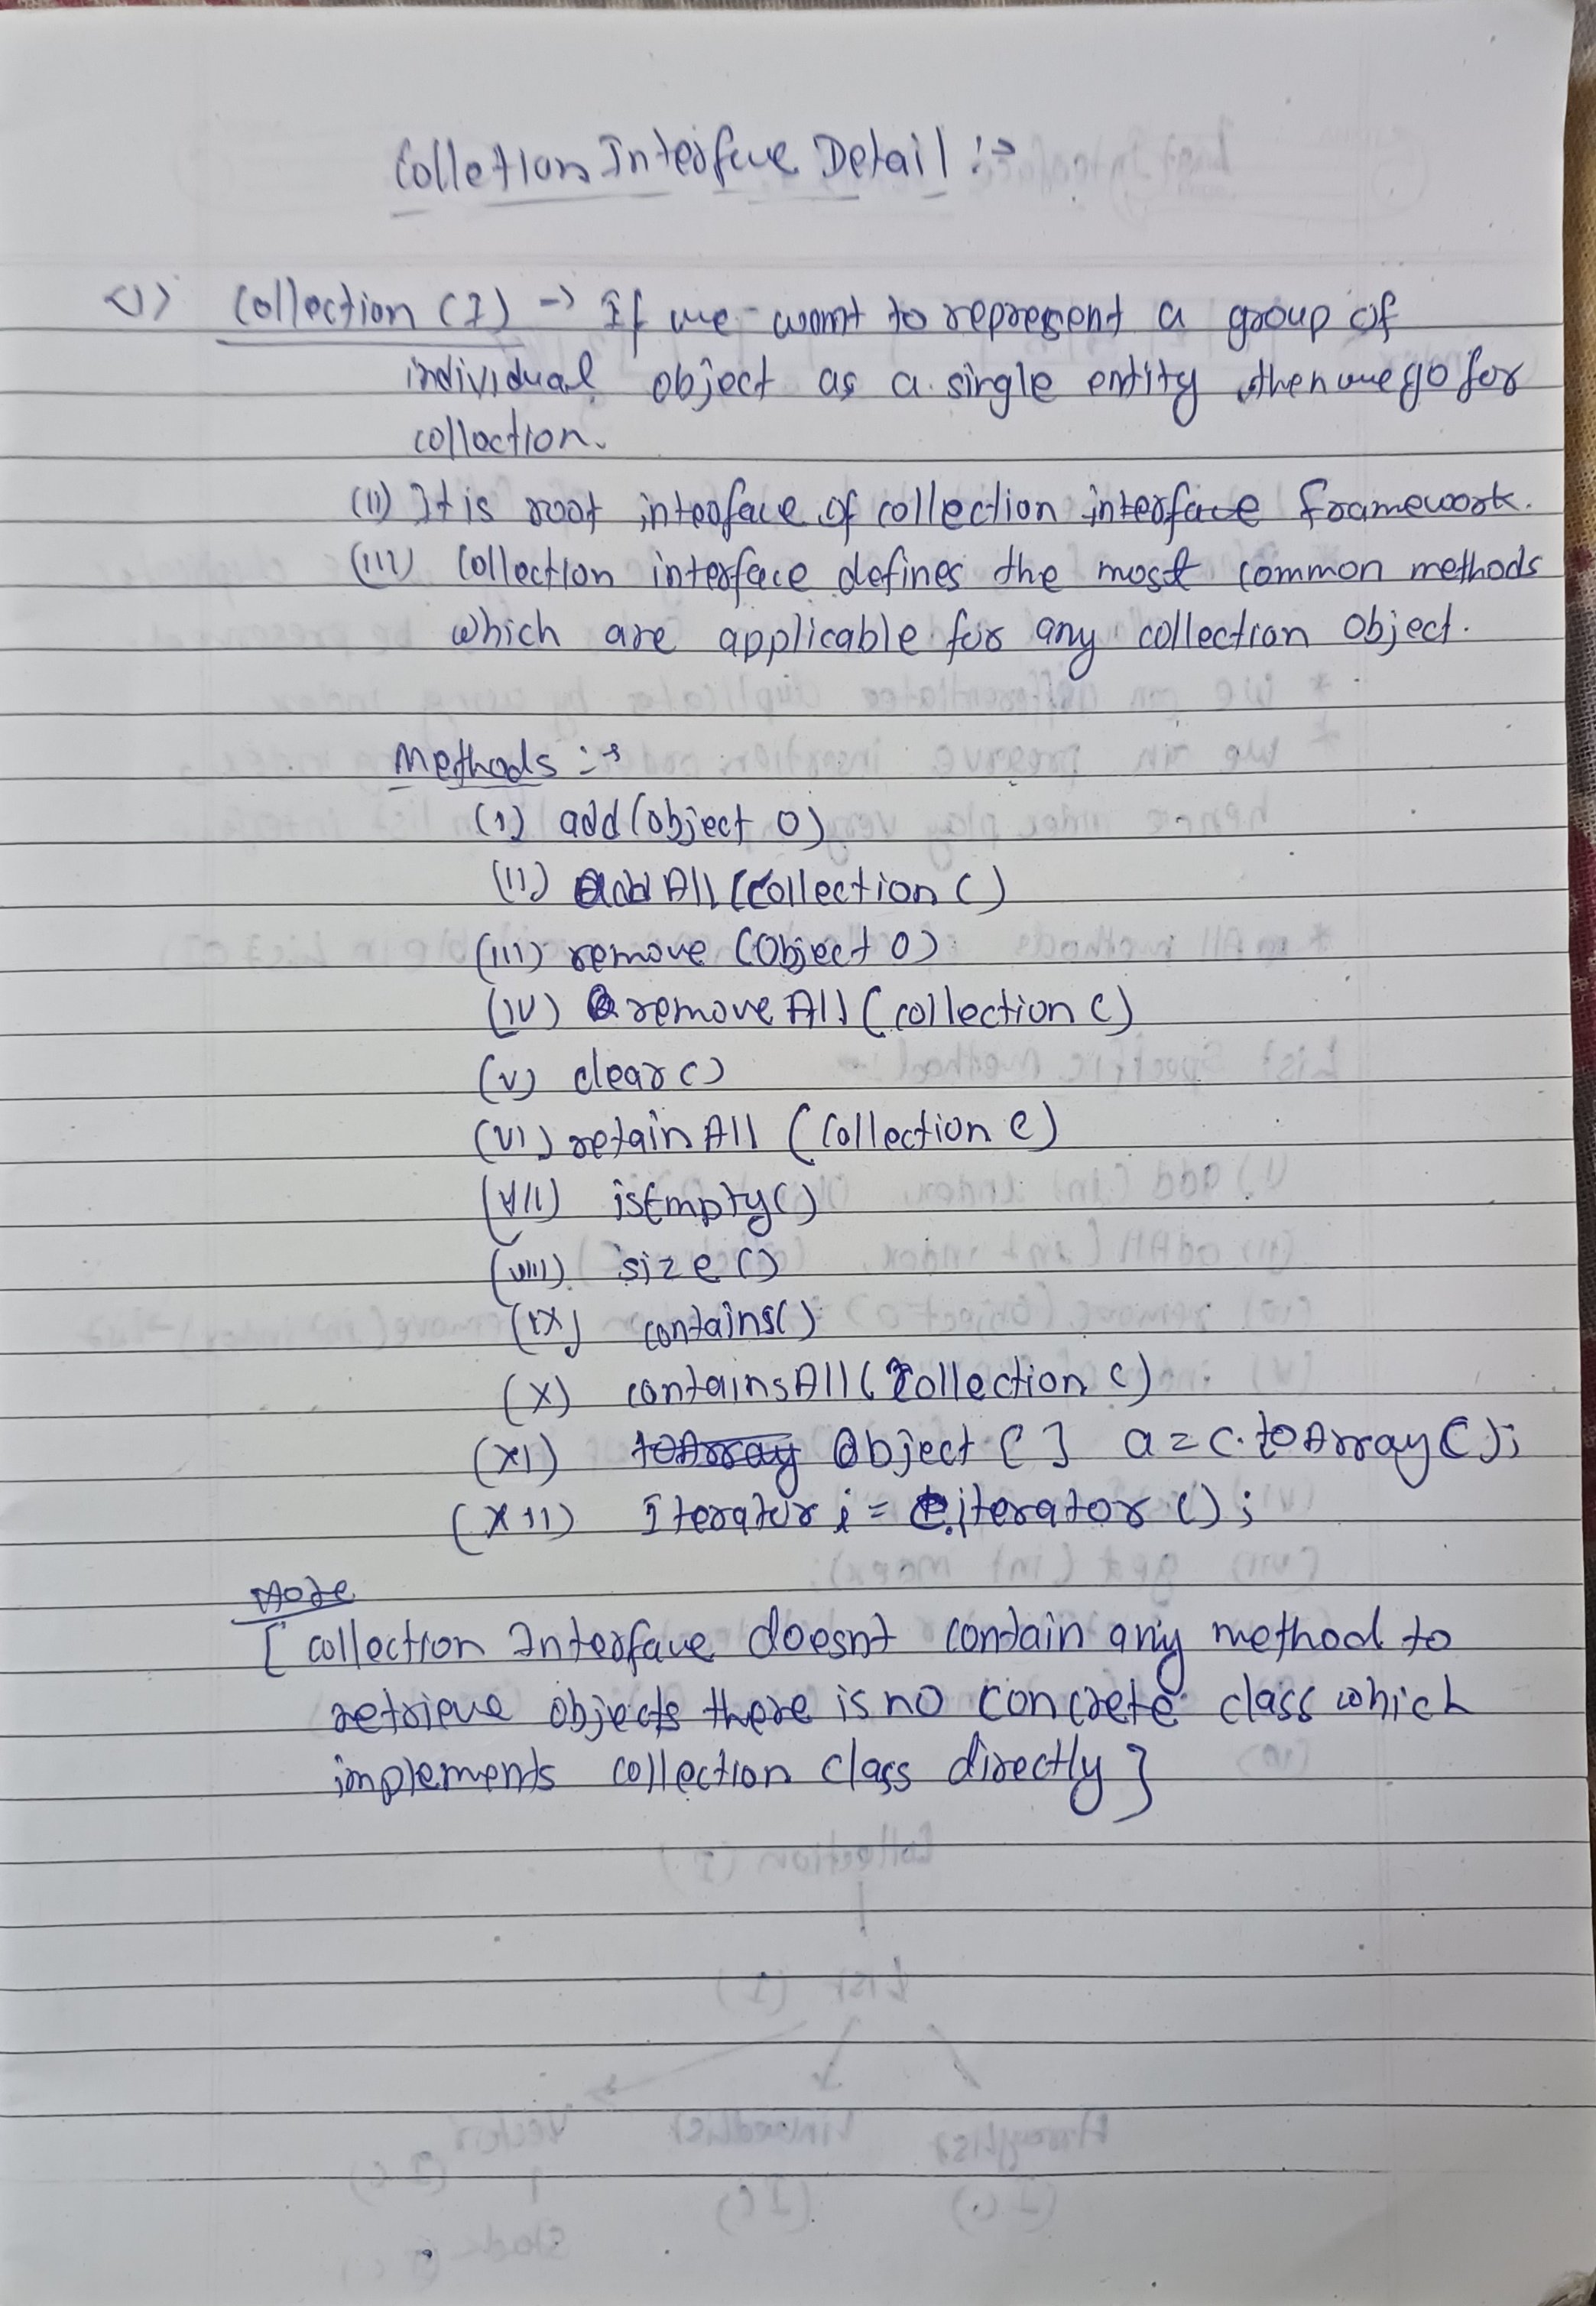 Colletion Interface Detail :->
<1> Collection (I) -> If we want to represent a group of
individual object as a single entity then we go for
collection.
(ii) It is root interface of collection interface framework.
(iii) Collection interface defines the most common methods
which are applicable for any collection object.
Methods :->
(i) add(object o)
(ii) add All (collection c)
(iii) remove (Object o)
(iv) remove All (collection c)
(v) clear()
(vi) retain All (Collection c)
(vii) isEmpty()
(viii) size()
(ix) contains()
(x) containsAll(Collection c)
(xi) toArray Object [] a = c.toArray();
(xii) Iterator i = c.iterator();
Note
[ collection Interface doesnt contain any method to
retrieve objects there is no concrete class which
implements collection class directly ]